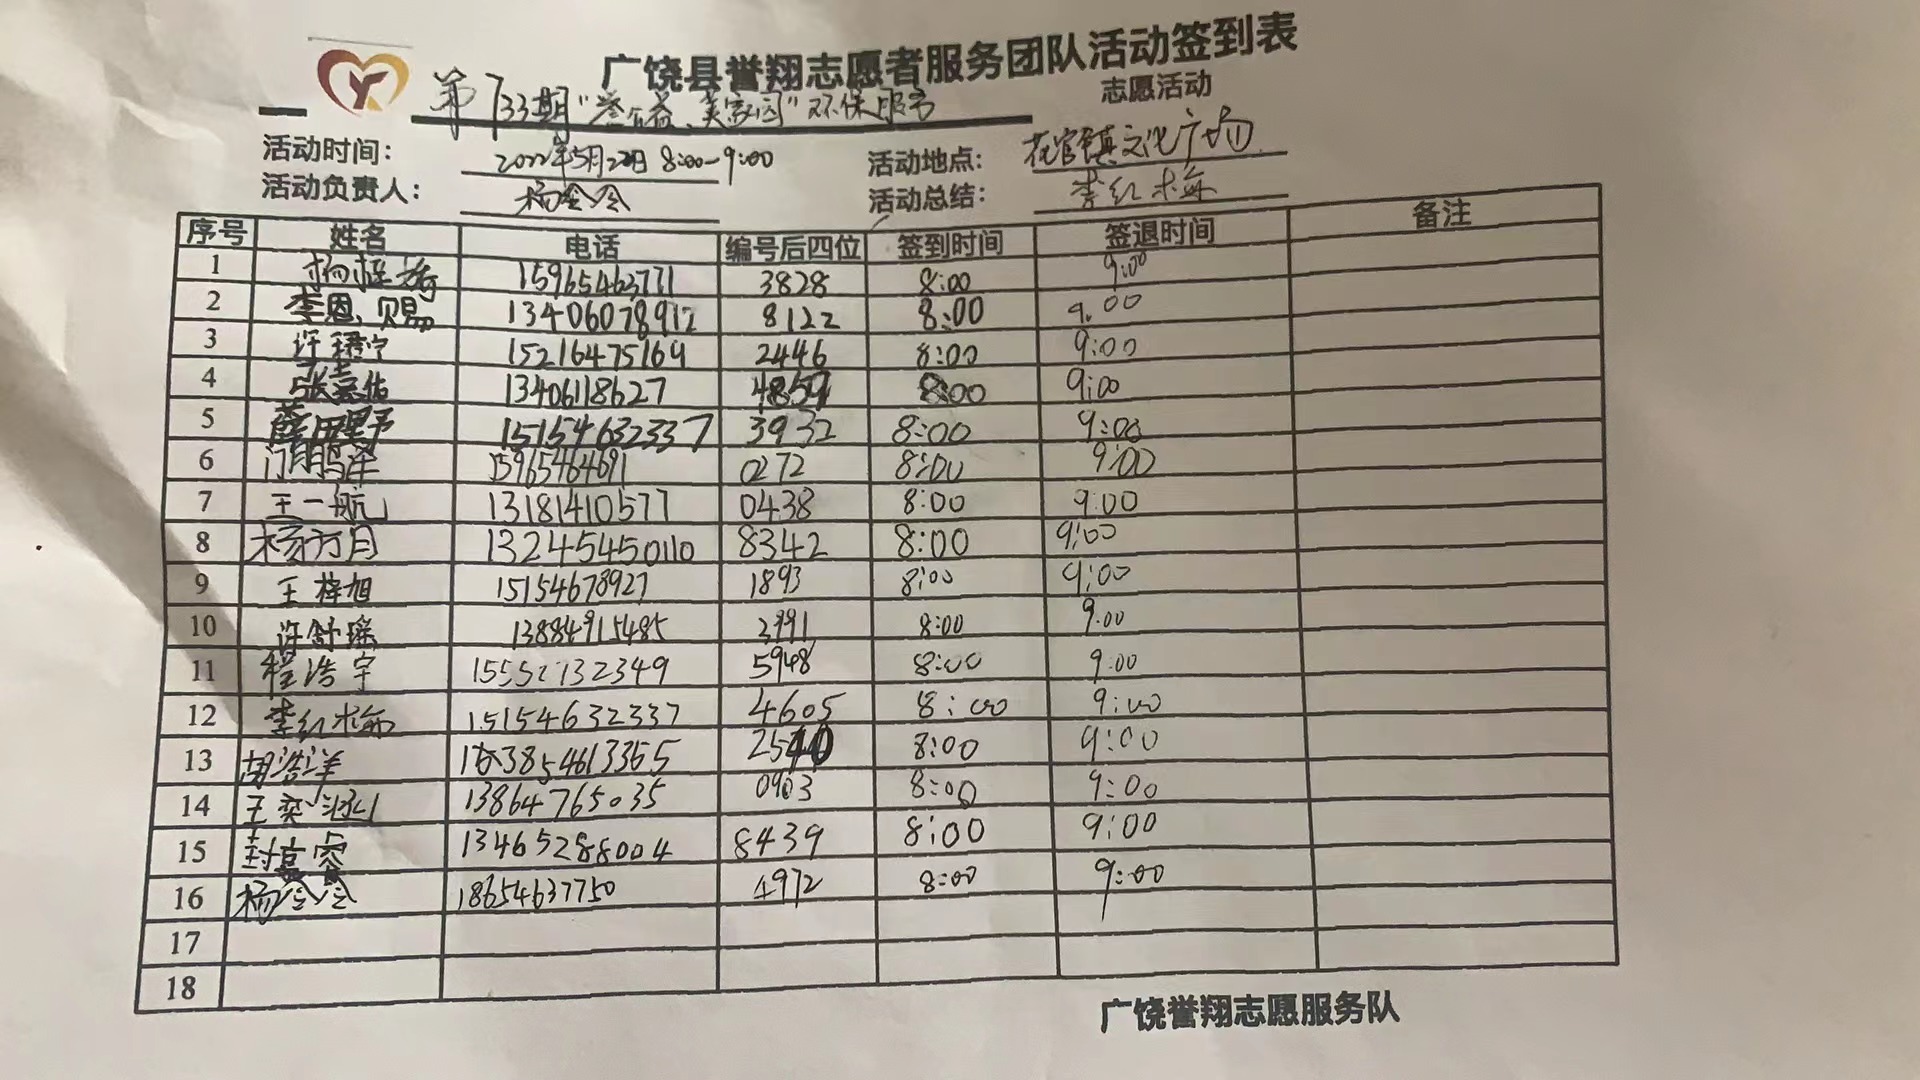 广饶县誉翔志愿者服务团队活动签到表
第733期"誉公益、美家园"环保服务 志愿活动
活动时间: 2022年5月22日 8:00-9:00 活动地点: 花官镇文化广场
活动负责人: 杨冷冷 活动总结: 李红梅
序号 姓名 电话 编号后四位 签到时间 签退时间 备注
1 15965463771 3828 8:00 9:00
2 李恩赐 13406078912 8122 8:00 9:00
3 许 15216475169 2446 8:00 9:00
4 张 13406118627 8:00 9:00
5 薛 15154632337 3932 8:00 9:00
6 门鹏洋 15965464691 0272 8:00 9:00
7 王一航 13181410577 0438 8:00 9:00
8 杨方月 13245450110 8342 8:00 9:00
9 王梓旭 15154678927 1893 8:00 9:00
10 许舒瑶 13884915485 3991 8:00 9:00
11 程浩宇 15552732349 5948 8:00 9:00
12 李红梅 15154632337 4605 8:00 9:00
13 胡浩洋 8:00 9:00
14 王奕 13864765035 0903 8:00 9:00
15 封 13465288004 8439 8:00 9:00
16 杨冷冷 18654637750 4972 8:00 9:00
17
18
广饶誉翔志愿服务队